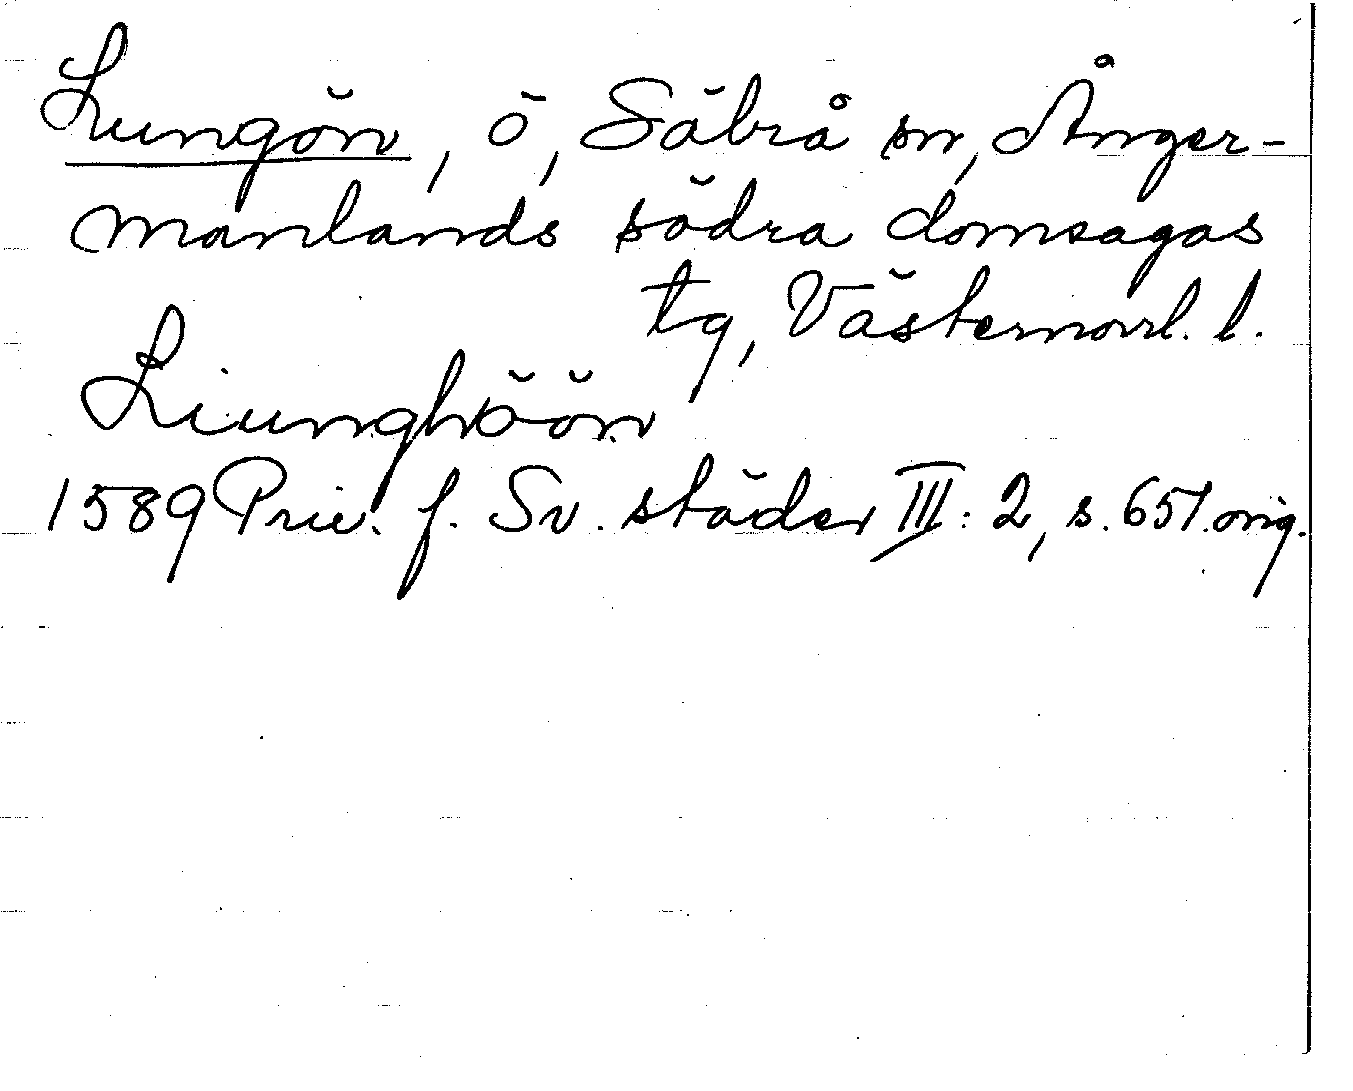 Lungön, ö, Säbrå sn, Ånger-
manlands södra domsagas
tg, Västernorrl. l.
Liunghöön
1589 Priv. f. Sv. städer III: 2, s. 651. orig.